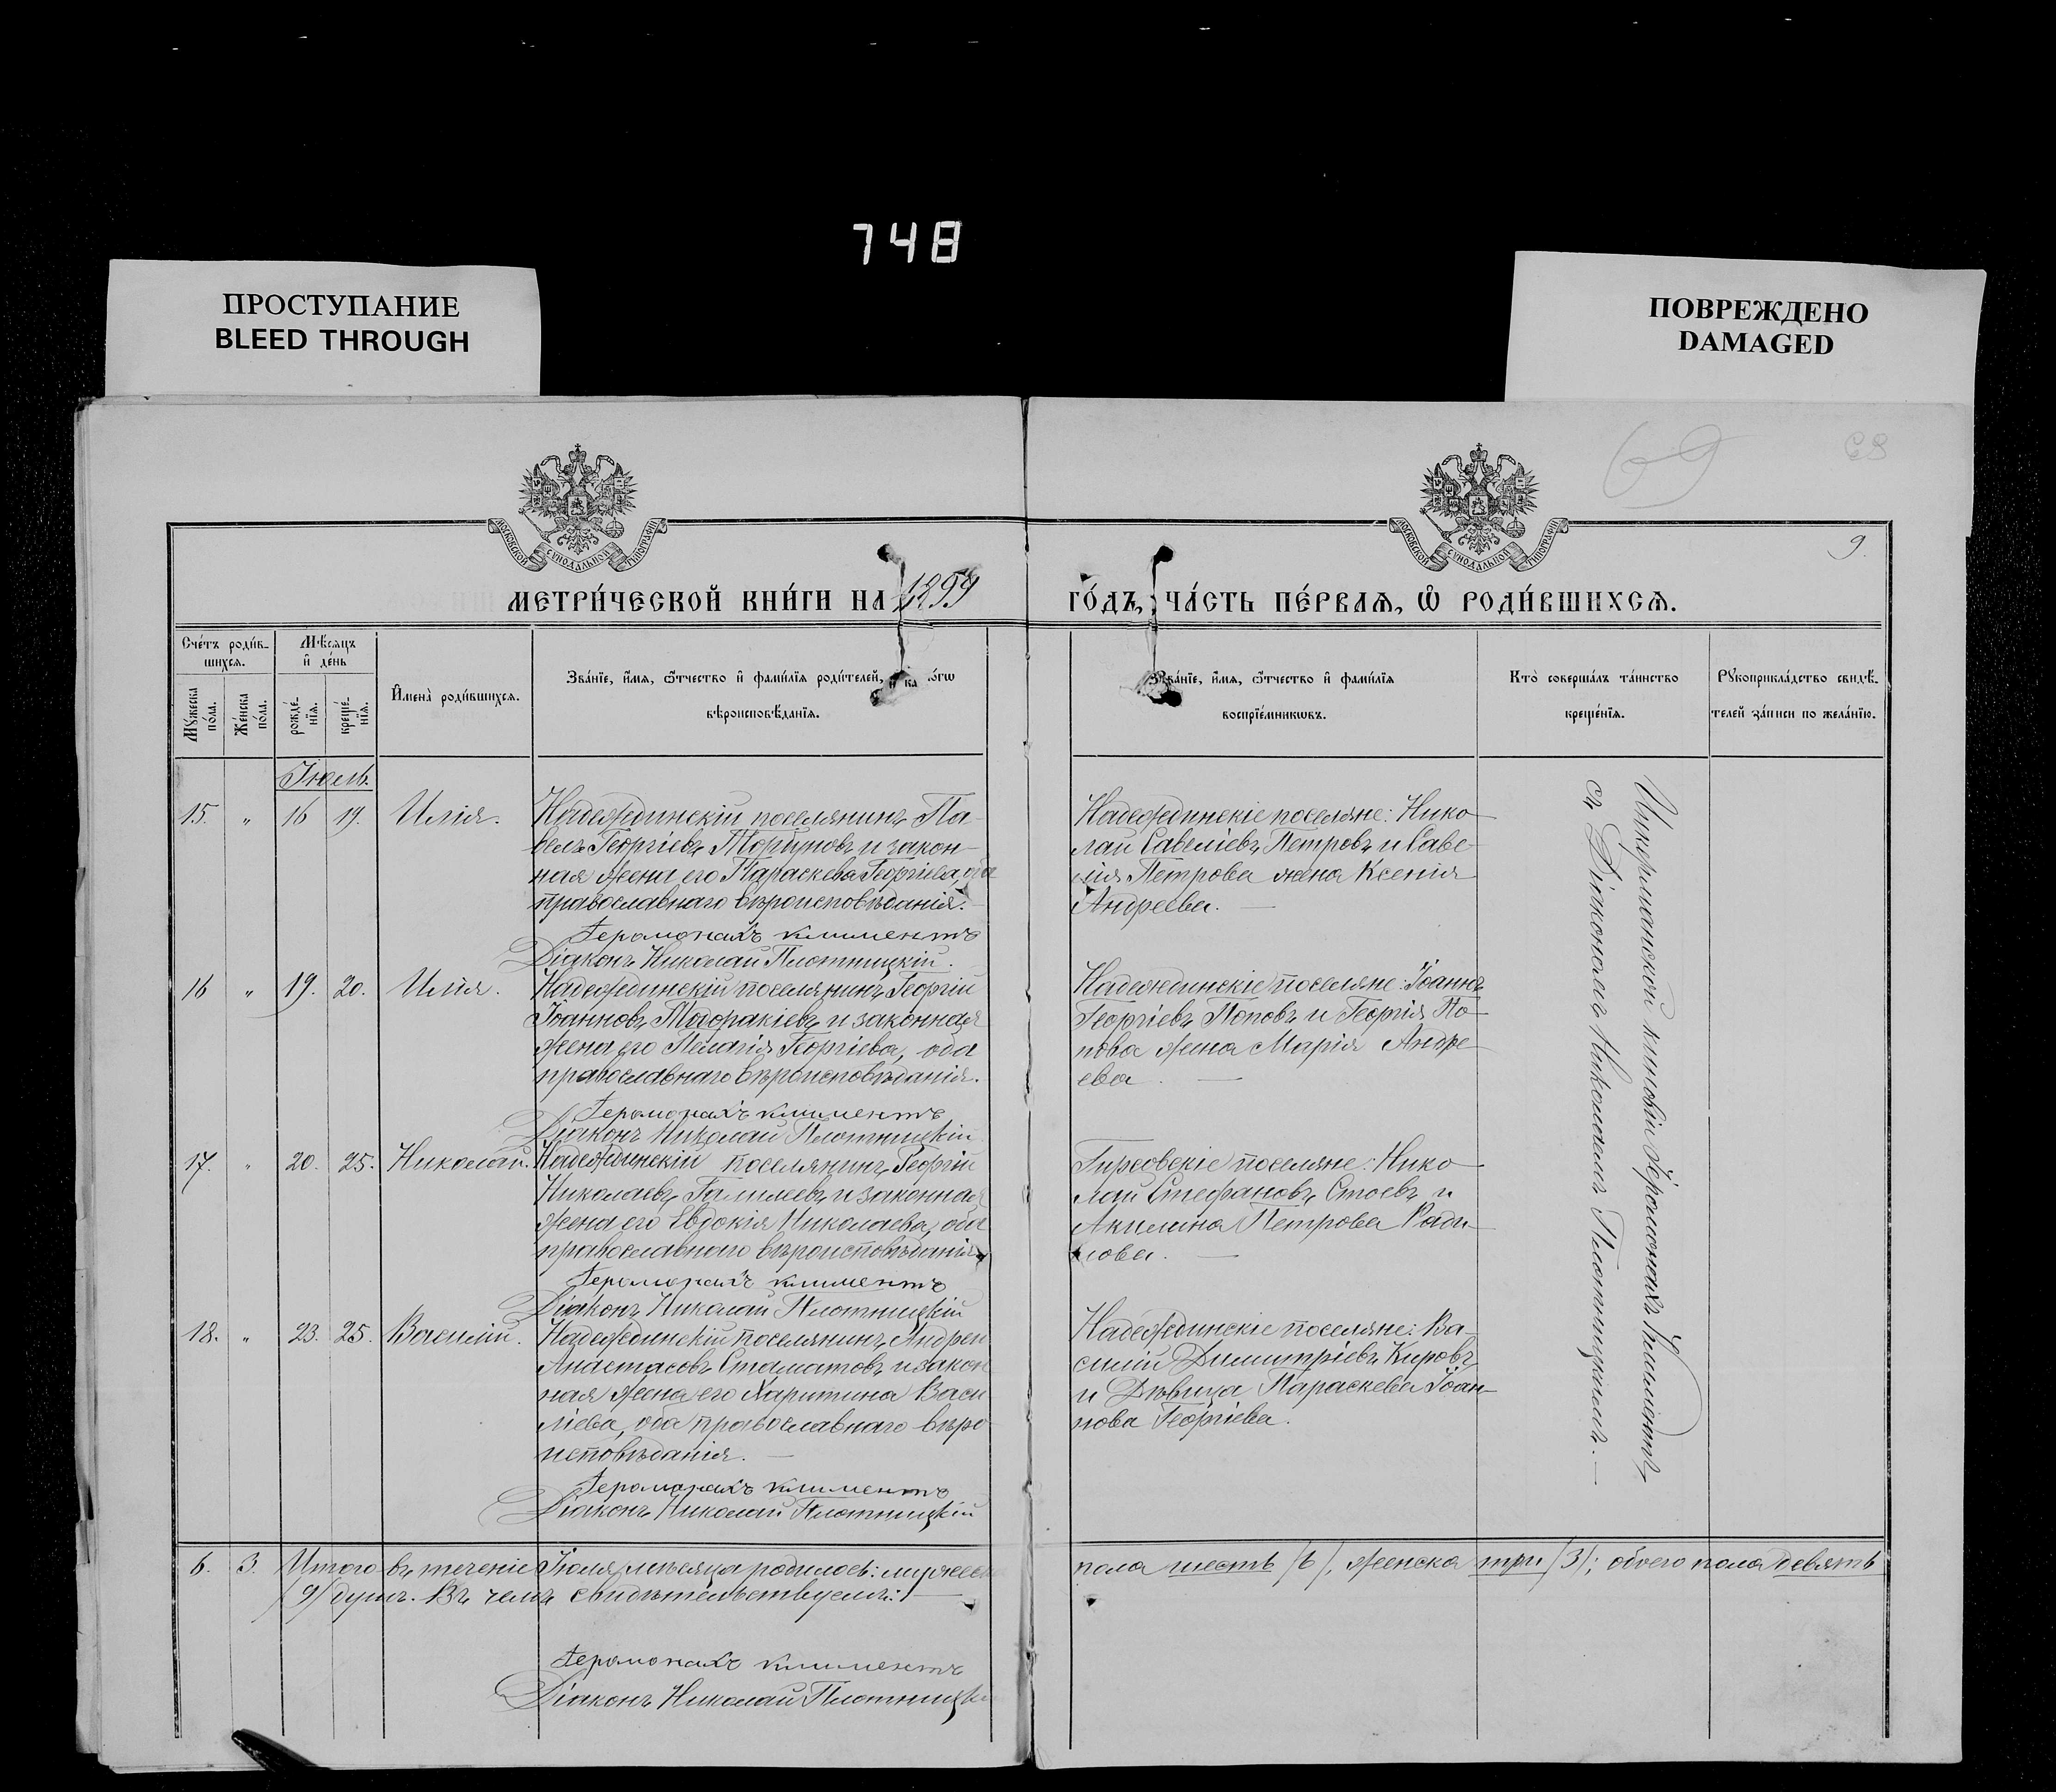 748
ПРОСТУПАНИЕ
BLEED THROUGH
ПОВРЕЖДЕНО
DAMAGED
69
9.
МОСКОВСКОЙ СѴНОДАЛЬНОЙ ТИПОГРАФІИ
МОСКОВСКОЙ СѴНОДАЛЬНОЙ ТИПОГРАФІИ
МЕТРИ́ЧЕСКОЙ КНИ́ГИ НА 1899
ГО́ДЪ, ЧА́СТЬ ПЕ́РВАѦ, Ѡ РОДИ́ВШИХСѦ.
Сче́тъ роди́в-
шихсѧ.
Мѣ́сѧцъ
и҆ де́нь
Мꙋжеска
по́ла.
Же́нска
по́ла.
рожде́-
нїѧ.
креще́-
нїѧ.
И҆мена̀ роди́вшихсѧ.
Зва́нїе, и҆́мѧ, ѻ҆́тчество и҆ фами́лїѧ роди́телей, и҆ ка ѡ́гѡ
вѣроисповѣ́данїѧ.
Зва́нїе, и҆́мѧ, ѻ҆́тчество и҆ фами́лїѧ
воспрїе́мникѡвъ.
Кто̀ соверша́лъ та́инство
креще́нїѧ.
Рꙋкоприкла́дство свидѣ́-
телей за́писи по жела́нїю.
Іюль.
15. " 16 19. Илія.
Надеждинскій поселянинъ Па-
велъ Георгіевъ Торгуновъ и закон-
ная жена его Параскева Георгіева, оба
православнаго вѣроисповѣданія. —
Іеромонахъ Климентъ
Діаконъ Николай Плотницкій.
Надеждинскіе поселяне: Нико-
лай Савеліевъ Петровъ и Саве-
лія Петрова жена Ксенія
Андреева. —
16 " 19. 20. Илія.
Надеждинскій поселянинъ Георгій
Іоанновъ и законная
жена его Пелагія Георгіева, оба
православнаго вѣроисповѣданія.
Іеромонахъ Климентъ
Діаконъ Николай Плотницкій
Надеждинскіе поселяне: Іоаннъ
Георгіевъ Поповъ и Георгія По-
пова жена Марія Андре-
ева. —
17. " 20. 25. Николай.
Надеждинскій поселянинъ Георгій
Николаевъ Галилеевъ и законная
жена его Евдокія Николаева, оба
православнаго вѣроисповѣданія.
Іеромонахъ Климентъ
Діаконъ Николай Плотницкій
Гирсовскіе поселяне: Нико-
лай Стефановъ Стоевъ и
Акилина Петрова Ради-
лова. —
18. " 23. 25. Василій.
Надеждинскій поселянинъ Андрей
Анастасовъ Стаматовъ и закон
ная жена его Харитина Васи
ліева, оба православнаго вѣро
исповѣданія. —
Іеромонахъ Климентъ
Діаконъ Николай Плотницкій
Надеждинскіе поселяне: Ва-
силій Димитріевъ Кировъ
и Дѣвица Параскева Іоан-
нова Георгіева.
Киновіи Іеромонахъ Климентъ,
съ Діакономъ Николаемъ Плотницкимъ. —
6. 3. Итого въ теченіе Іюля мѣсяца родилось: мужеска
пола шесть /6/, женска три /3/; обоего пола девять
/9/ душъ. Въ чемъ свидѣтельствуемъ: —
Іеромонахъ Климентъ
Діаконъ Николай Плотницкій